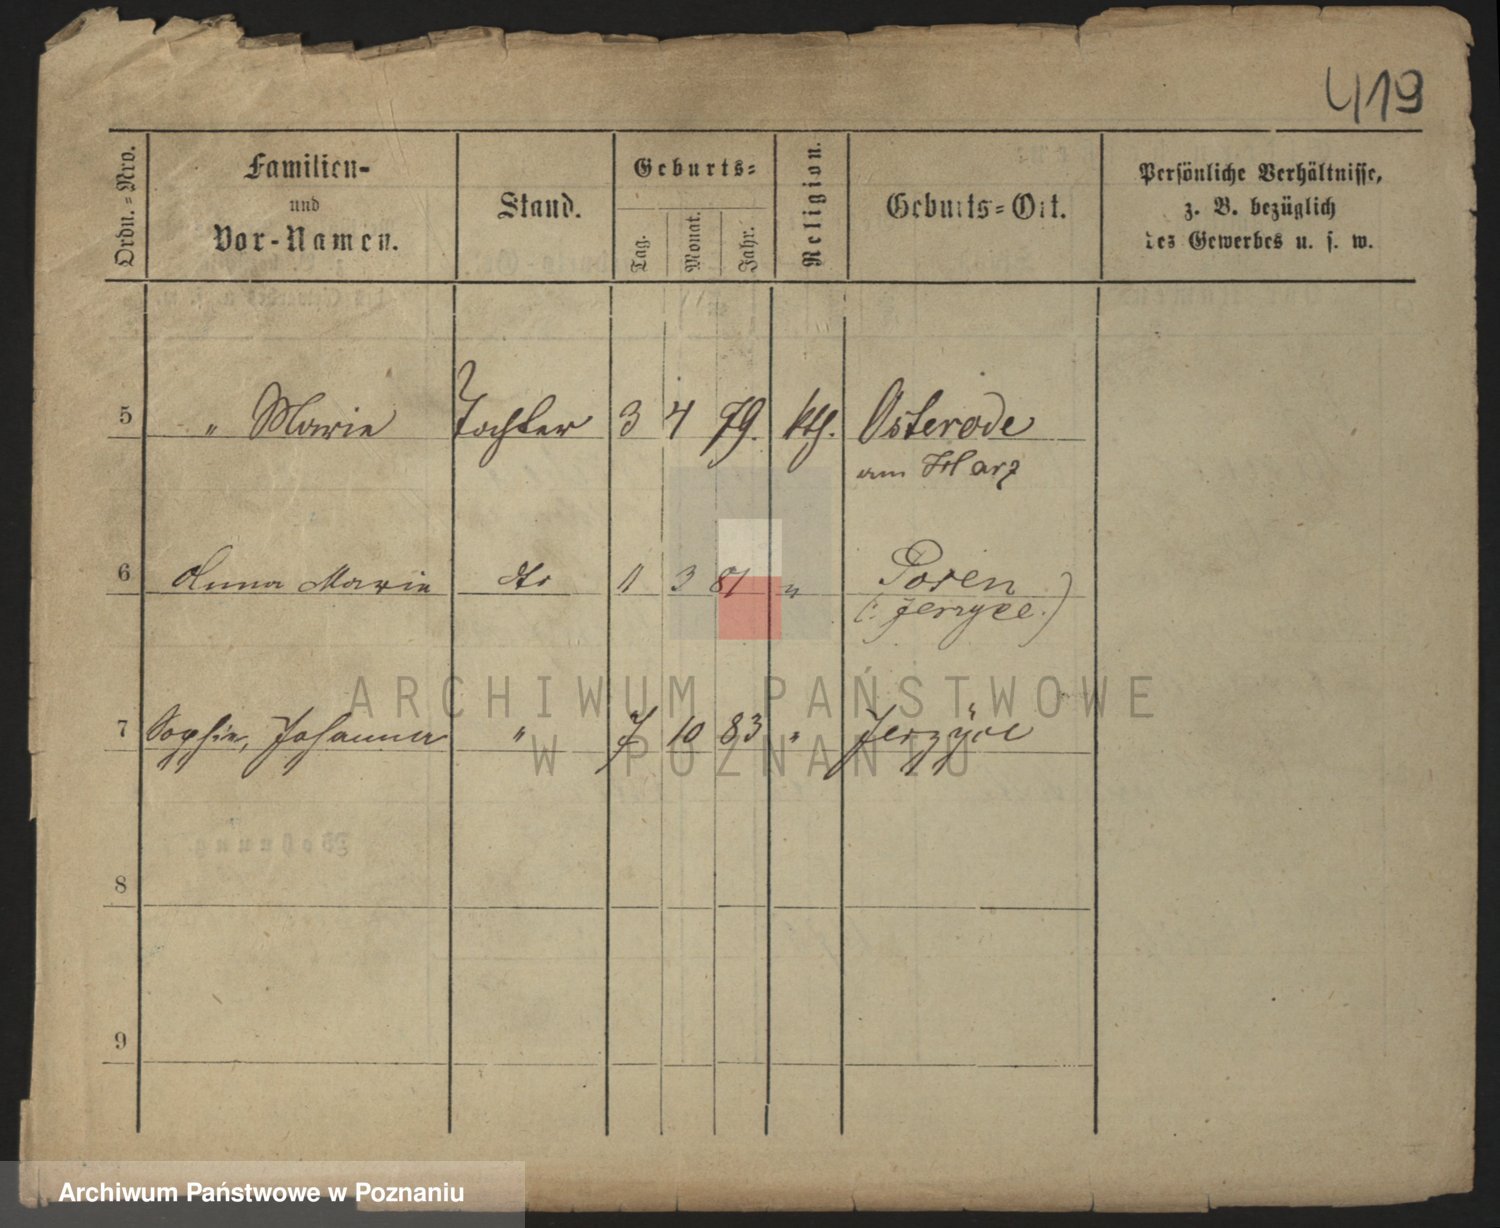 419
Ordn.-Nro.
Familien-
und
Vor-Namen.
Stand.
Geburts-
Tag.
Monat.
Jahr.
Religion.
Geburts-Ort.
Persönliche Verhältnisse,
z. B. bezüglich
des Gewerbes u. s. w.
5 " Marie Tochter 3 4 79. kth. Osterode
am Harz
6 Anna Marie dto 11 3 81 " Posen
(: Jerzyce :)
7 Sophie, Johanna " 7 10 83 " Jerzyce
8
9
ARCHIWUM PAŃSTWOWE
W POZNANIU
Archiwum Państwowe w Poznaniu